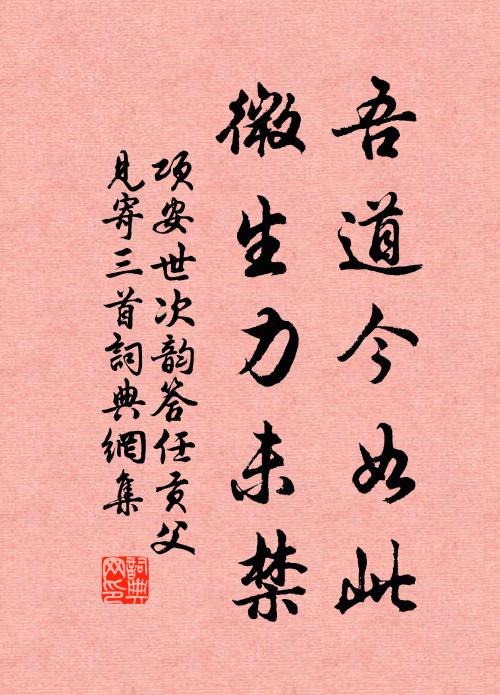 吾道今如此
微生力未禁
項安世次韵答任贡父
見寄三首詞典網集
詞典
网印